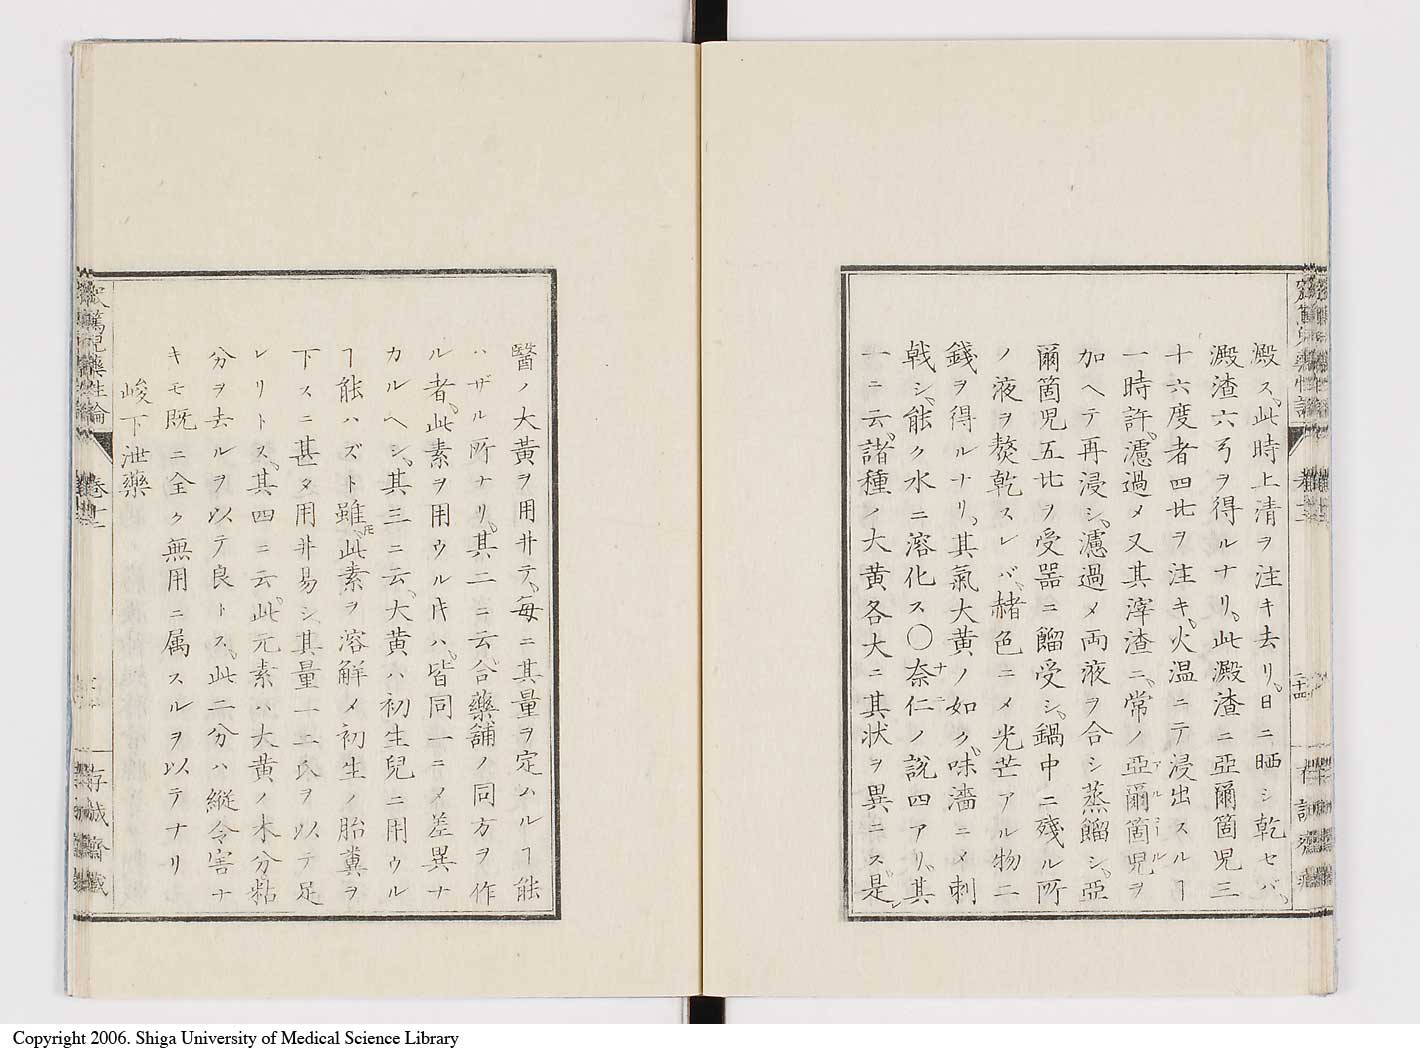 澱ス此時上清ヲ注キ去リ日ニ晒シ乾セバ
澱渣六弓ヲ得ルナリ此澱渣ニ亞爾箇児三
十六度者四𠦃ヲ注キ火温ニテ浸出スルヿ
一時許濾過メ又其滓渣ニ常ノ亞爾箇児ヲ
アルコール
加ヘテ再浸シ濾過メ両液ヲ合シ蒸餾シ亞
爾箇児五𠦃ヲ受器ニ餾受シ鍋中ニ殘ル所
ノ液ヲ熬乾スレバ赭色ニメ光芒アル物二
錢ヲ得ルナリ其氣大黄ノ如ク味濇ニメ刺
戟シ能ク水ニ溶化ス〇奈仁ノ説四アリ其
ナニ
一ニ云諸種ノ大黄各大ニ其状ヲ異ニス是レ
醫ノ大黄ヲ用井テ毎ニ其量ヲ定ハルヿ能
ハザル所ナリ其二ニ云合藥舗ノ同方ヲ作
ル者此素ヲ用ウル𪜈ハ皆同一ニメ差異ナ
カルヘシ其三ニ云大黄ハ初生兒ニ用ウル
ヿ能ハズト雖𪜈此素ヲ溶解メ初生ノ胎糞ヲ
下スニ甚タ用井易シ其量一二氏ヲ以テ足
レリトス其四ニ云此元素ハ大黄ノ木分粘
分ヲ去ルヲ以テ良トス此二分ハ縦令害ナ
キモ既ニ全ク無用ニ属スルヲ以テナリ
峻下泄藥
篤児藥性論
卷十二
存誠齋蔵
Copyright 2006. Shiga University of Medical Science Library